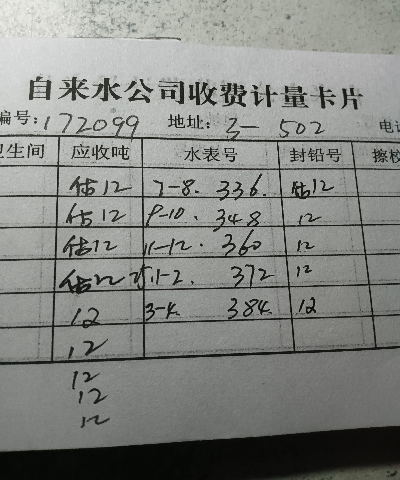 自来水公司收费计量卡片
编号:172099 地址:3-502 电
卫生间 应收吨 水表号 封铅号 擦
估12 7-8. 336. 估12
估12 9-10. 348 12
估12 11-12. 360 12
估 1-2. 372 12
12 3-4. 384. 12
12
12
12
12